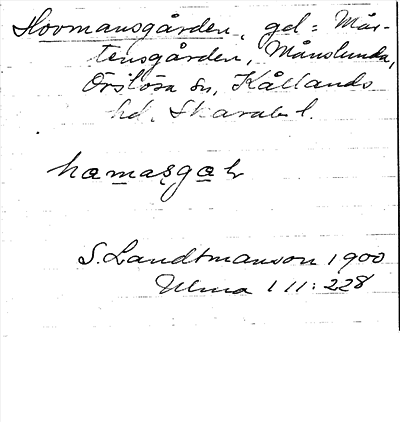 Hovmansgården, gel = Mår-
tensgården, Månslunda,
Örslösa sn, Kållands
hd, Skarab l.
hamasgaṉ
S. Landtmanson 1900
Ulma 111:228